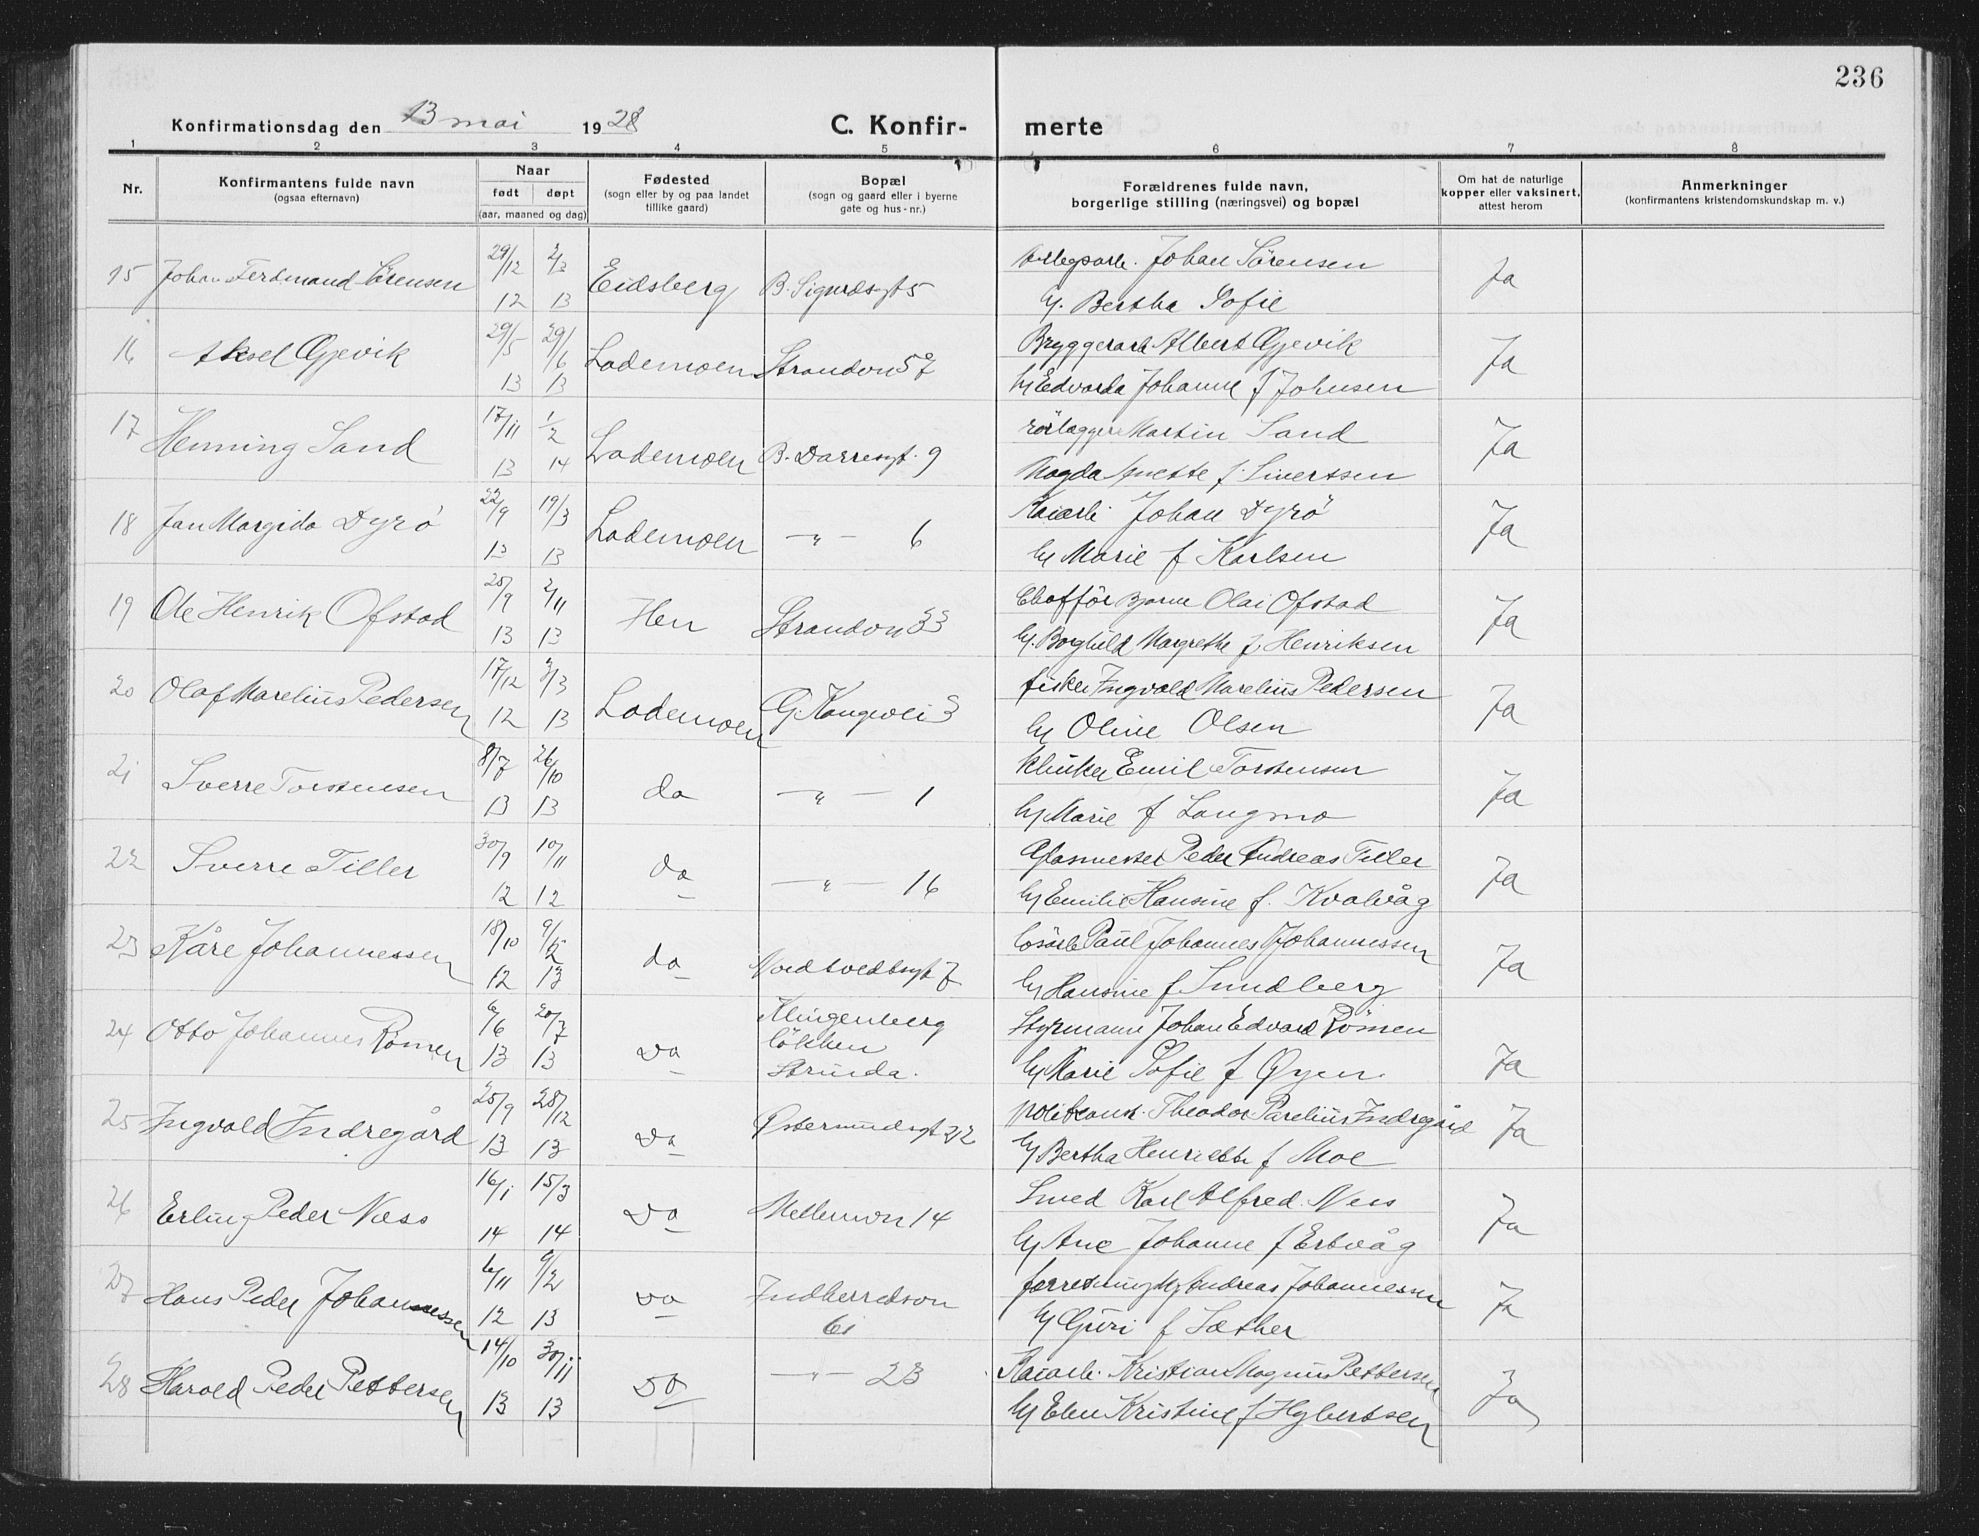 236
Konfirmationsdag den 13 mai 1928
C. Konfir- merte
1 2 3 4 5 6 7 8
Nr.
Konfirmantens fulde navn
(ogsaa efternavn)
Naar
født døpt
(aar, maaned og dag)
Fødested
(sogn eller by og paa landet
tillike gaard)
Bopæl
(sogn og gaard eller i byerne
gate og hus-nr.)
Forældrenes fulde navn,
borgerlige stilling (næringsvei) og bopæl
Om hat de naturlige
kopper eller vaksinert,
attest herom
Anmerkninger
(konfirmantens kristendomskundskap m. v.)
15 Johan Ferdinand Sörensen 29/12 12 2/3 13 Eidsberg B. Sigurdsgt 5 Johan Sörensen
H. Bertha Sofie Ja
16 Aksel Gjevik 29/5 13 29/6 13 Lademoen Strandvn 57 Bryggerarb Albert Gjevik
Hu Edvarda Johanne f Johnsen Ja
17 Henning Sand 17/11 13 1/2 14 Lademoen B. Darresgt. 9 rörlægger Martin Sand
Magda Anette f. Sivertsen Ja
18 Jan Margido Dyrö 22/9 13 19/3 13 Lademoen —„— 6 Kaiarb. Johan Dyrö
Hu Marie f Karlsen Ja
19 Ole Henrik Ofstad 25/9 13 2/11 13 Hen Strandvn 33 Chafför Bjarne Olai Ofstad
Hu. Borghild Margrethe f. Henriksen Ja
20 Olaf Marelius Pedersen 17/12 12 3/3 13 Lademoen G. Kongevei 3 fisker Ingvald Marelius Pedersen
Hu Oline Olsen Ja
21 Sverre Torstensen 8/7 13 26/10 13 do —„— 1 Klinker Emil Torstensen
Hu Marie f Langmo Ja
22 Sverre Tiller 30/9 12 10/11 12 do —„— 16 Glasmester Peder Andreas Tiller
Hu Emilie Hansine f. Kvalvåg Ja
23 Kåre Johannessen 18/10 12 13 do Nordtvedtsgt 7 Paul Johannes Johannessen
Hu Hansine f Sundberg Ja
24 Otto Johannes Römen 6/6 13 20/7 13 do Klingenberg
lökken
Strinda. Styrmann Johan Edvard Römen
Hu Marie Sofie f Øyen Ja
25 Ingvald Indregård 25/9 13 28/12 13 do Østersundsgt 22 politkonst. Theodor Parelius Indregård
Hu Bertha Henriette f Moe Ja
26 Erling Peder Næss 16/1 14 15/3 14 do Mellemvn 14 Smed Karl Alfred Næss
Hu Ane Johanne f Ertvåg Ja
27 Hans Peder Johannessen 6/11 12 9/2 13 do Indherredsvn
61 Andreas Johannessen
Hu Guri f Sæther Ja
28 Harald Peder Pettersen 14/10 13 30/11 13 do —„— 23 Kaiarb. Kristian Magnus Pettersen
Hu Elen Kristine f Hybertsen Ja